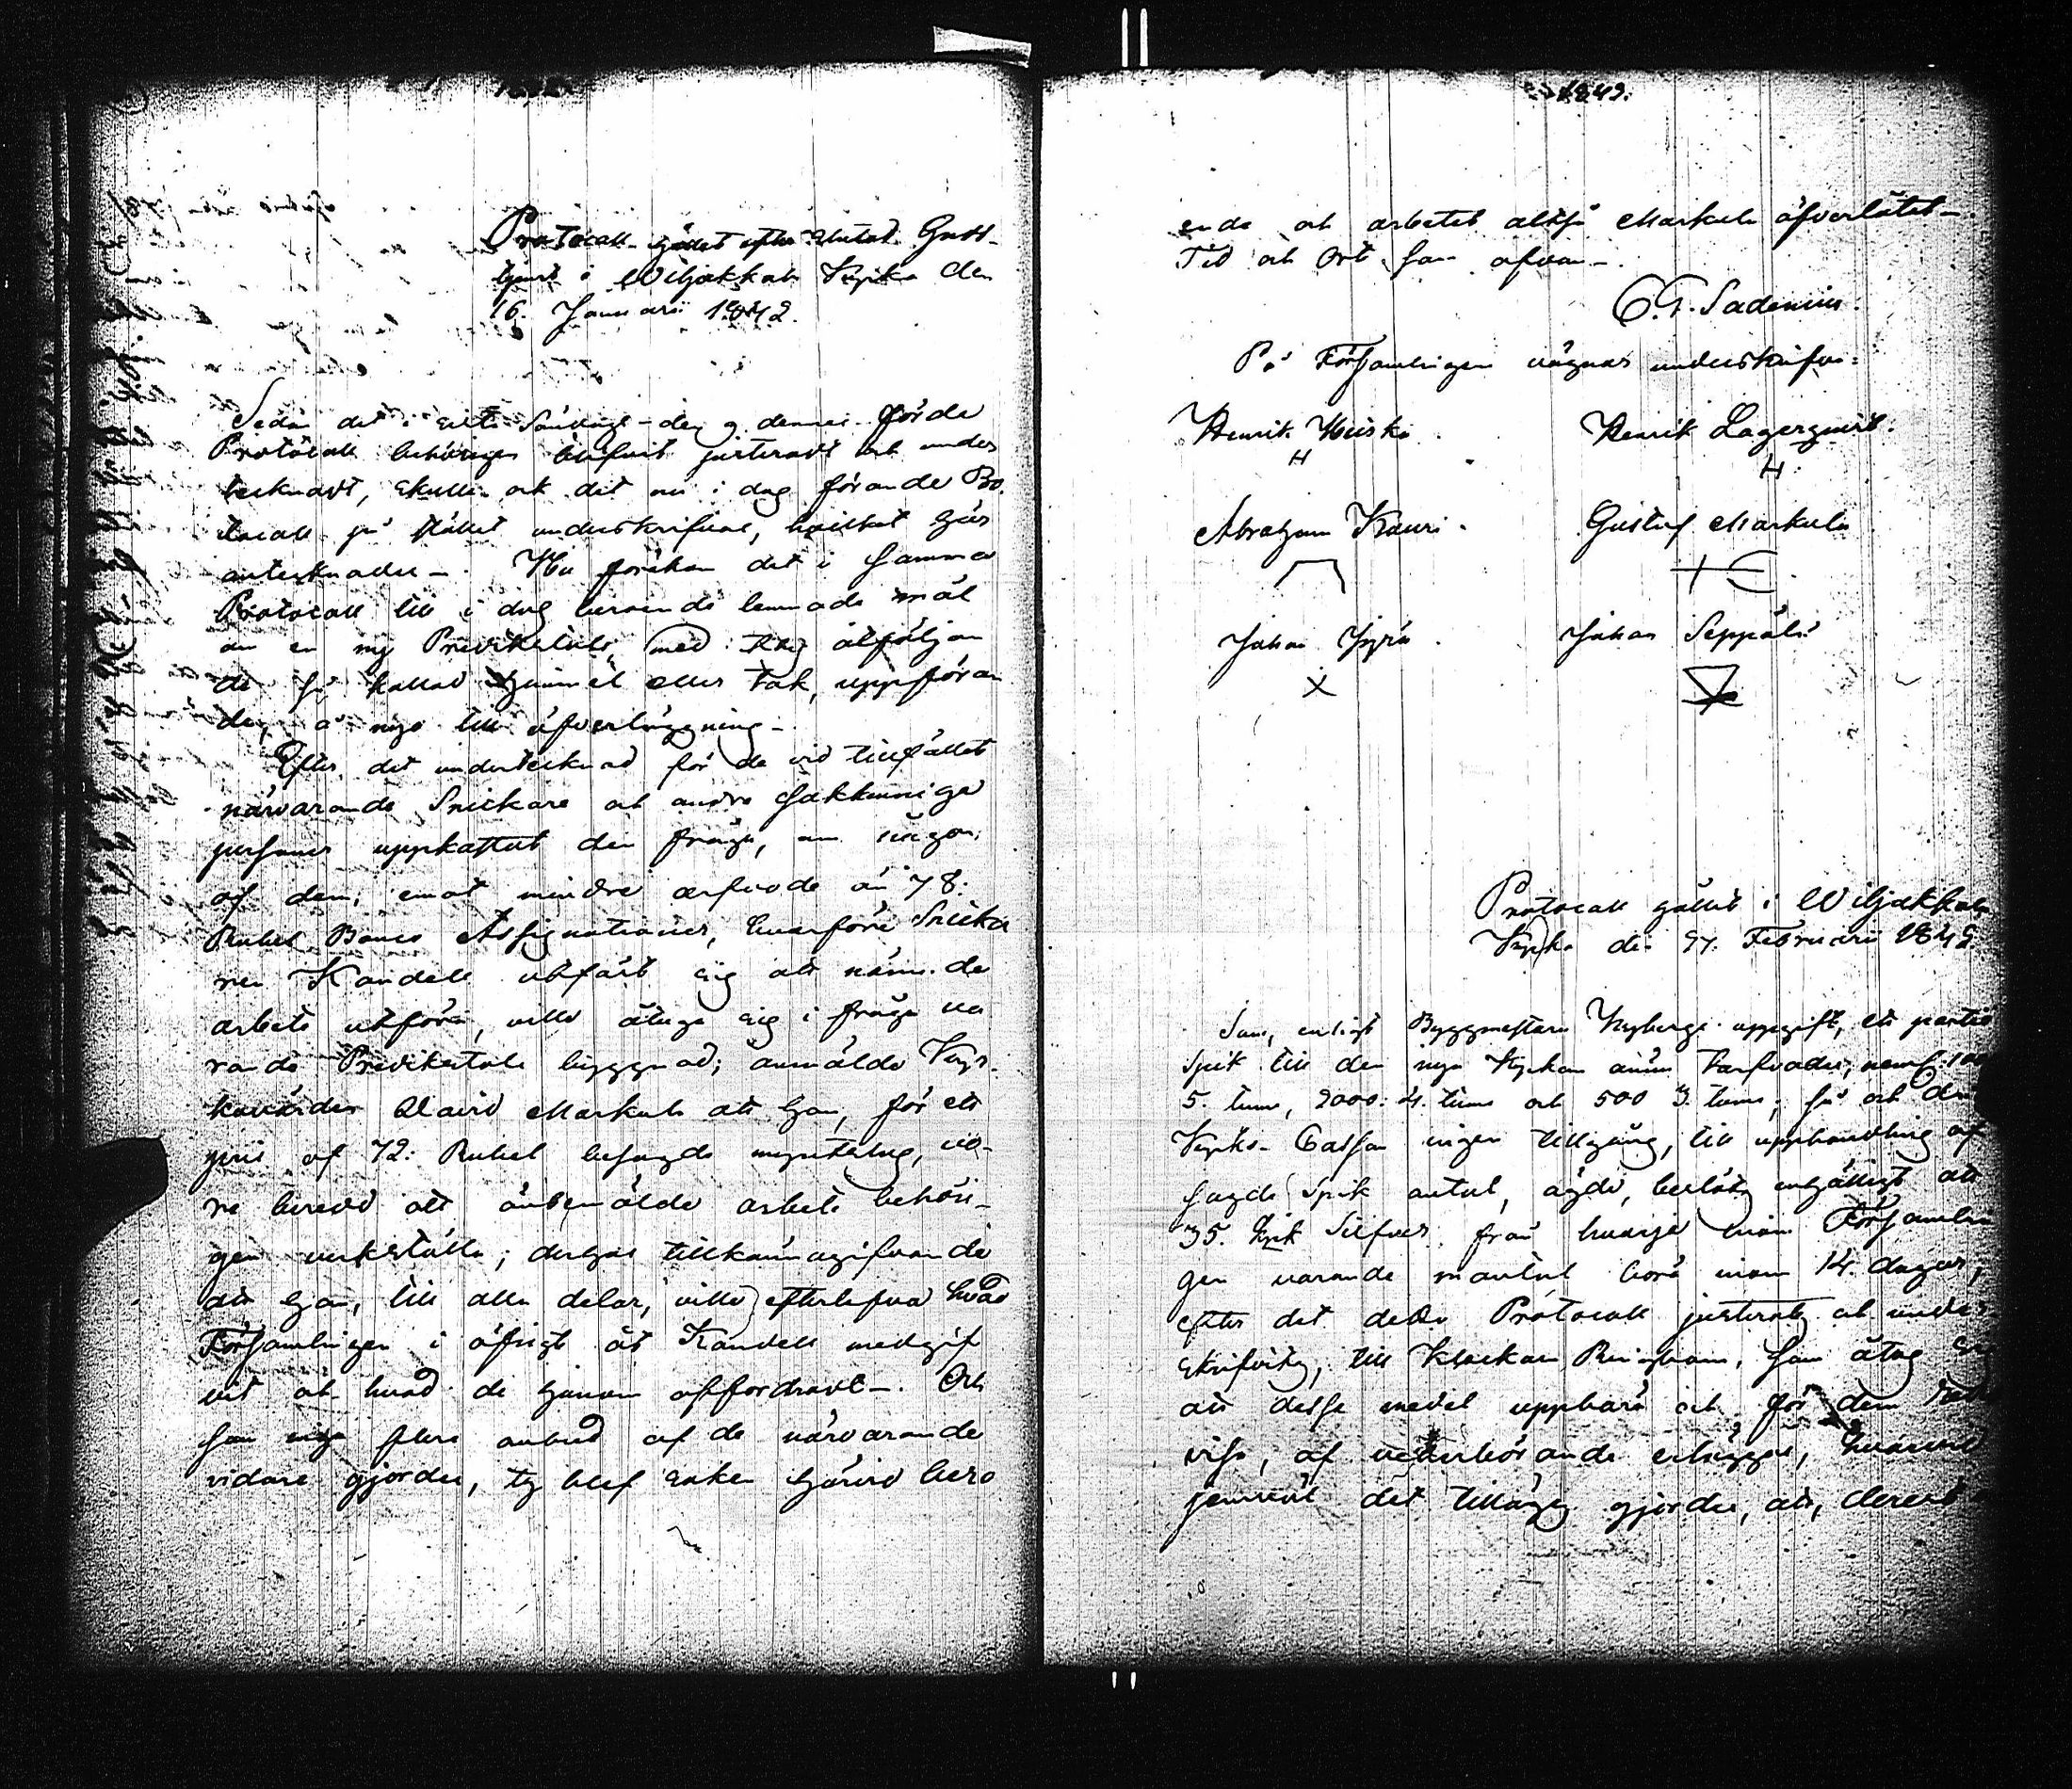 Protocoll hållet efter slutad Guds
tjenst i Wiljakkala Kyrka den
16. Januarii 1842.
Sedan det i sista Söndags - den 9 dennes förda
Protocoll behörigen blifvit justeradt och under
tecknadt, skulle ock det nu i dag förande Pro
tocoll på stället underskrifvas, hvilket här
antecknades -. Nu förekom det i samma
Protocoll till i dag beroende lemnade mål
om en ny Predikstols, med ty åtföljan
de så kallad himmel eller tak, uppföran
de, å nyo till öfverläggning -.
Efter det undertecknad för de vid tillfället
närvarande Snickare och andra sakkunniga
personer uppkastat den fråga, om någon
af dem, emot mindre arfvode än 78:
Rubel Banco Assignationer, hvarföre Snicka
ren Kandell utfäst sig att nämnde
arbete utföra, ville åtaga sig i fråga va
rande Predikstols byggnad; anmälde Kyr-
kovärden David Markula att han, för ett
pris af 72: Rubel besagde myntslag, vo-
re beredd att ånbemälde arbete behöri-
gen verkställa; derhos tillkännagifvande
att han, till alla delar, ville efterlefva hvad
Församlingen i öfrigt åt Kandell medgif
vit och hvad de honom affordrat -. Och
som inga flere anbud af de närvarande
vidare gjordes, ty blef saken härvid bero
1842.
ende och arbetet altså Markula öfverlåtet -.
Tid och Ort som ofvan -.
C. G. Sadenius.
På Församlingens vägnar underskrifva:
Henrik Henrik Lagerquist.
H H
Abraham Kauri. Gustaf Markula
Johan Johan Seppälä
X
Protocoll hållet i Wiljakkala
Kyrka den 27. Februarii 1842
Som, enligt Byggmästare Nybergs uppgift, ett parti
spik till den nya Kyrkan ännu tarfvades, neml.
5. tums, 2000: 4. tums och 500 3. tums; så och då
Kyrko-Cassan ingen tillgång, till upphandling af
sagde spik antal, ägde, beslöts enhälligt att
35. kopek Silfver från hvarje inom Församlin
gen varande mantal borå inom 14. dagar,
efter det detta Protocoll justerats och under
skrifvits, till Klockaren Ringbom, som åtog sig
att desse medel uppbära och för dem redo
visa, af vederbörande erläggas, hvarvid
jemväl det tillägg gjordes, att, derest